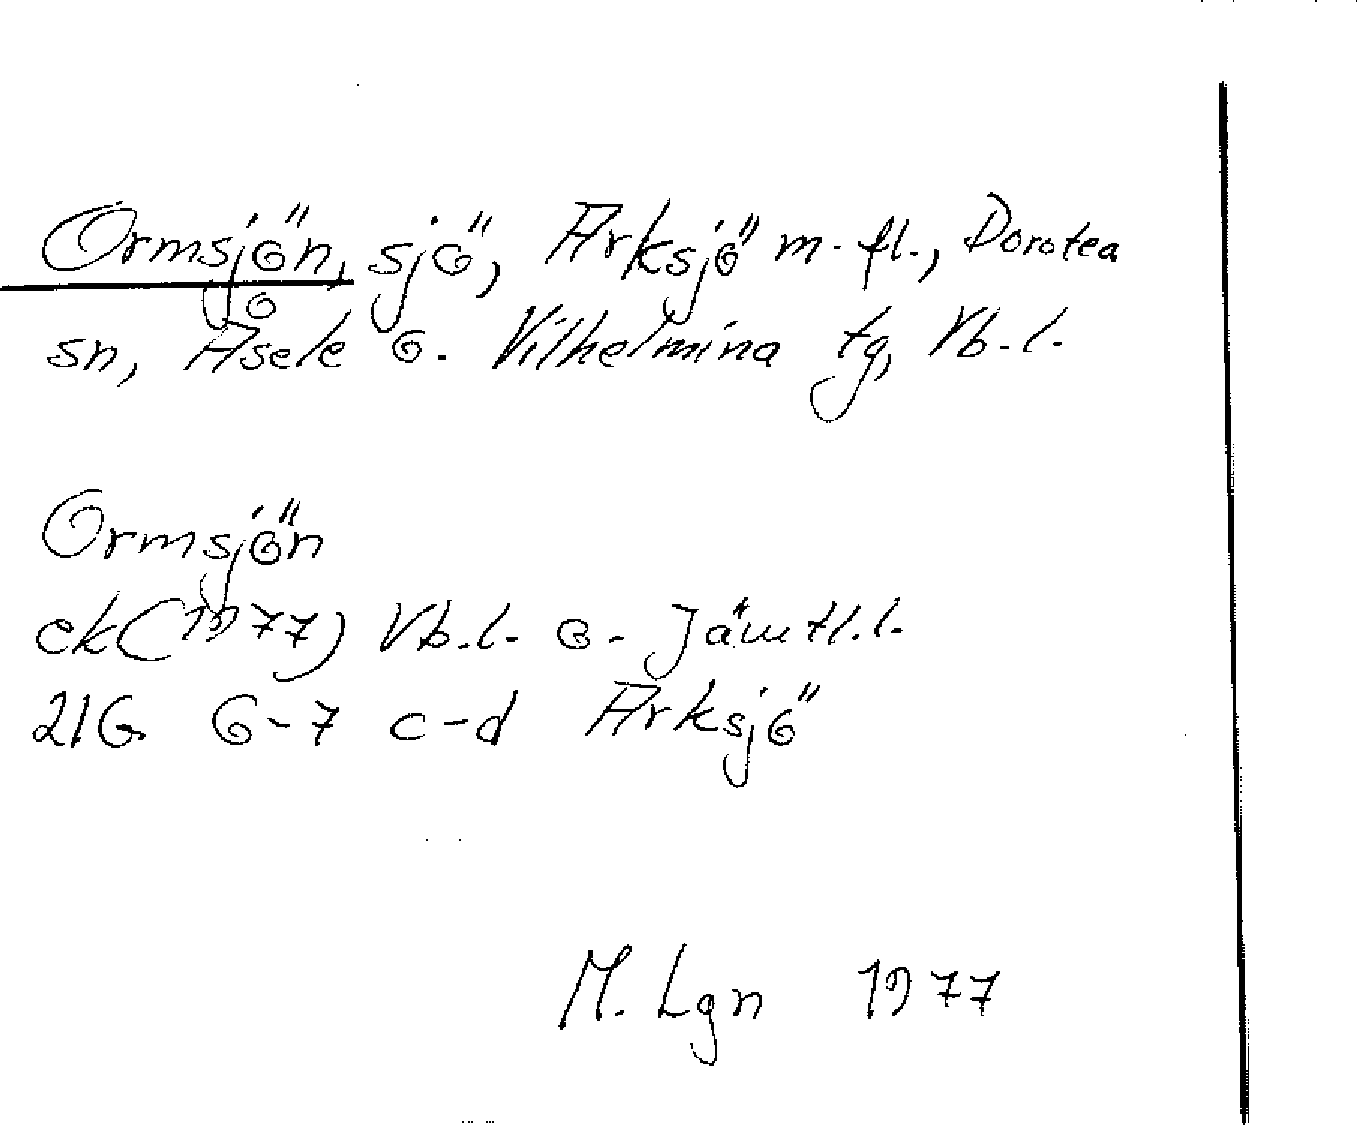 Ormsjön, sjö, Arksjö m. fl., Dorotea
sn, Åsele o. Vilhelmina tg, Vb. l.
Ormsjön
ek (1977) Vb. l. o. Jämtl. l.
21G 6-7 c-d Arksjö
M. Lgn 1977